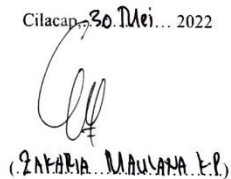 Cilacap, 30 Mei... 2022
(ZAKARIA MAULANA E.P.)